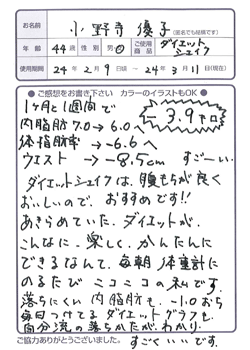 お名前 小野寺 優子 (匿名でも結構です)
年齢 44歳 性別 男・女 ご使用商品 ダイエットシェイク
使用期間 24年2月9日頃 ~ 24年3月11日(現在)
●ご感想をお書き下さい カラーのイラストもOK●
1ヶ月と1週間で
3.9キロ
内脂肪 7.0→6.0へ
体脂肪率 → -6.6へ
ウエスト → -8.5cm すごーい。
ダイエットシェイクは、腹もちが良く
おいしので、おすすめです!!
あきらめていた、ダイエットが、
こんなに、楽しく、かんたんに
できるなんて、毎朝体重計に
のるたび ニコニコの私です。
落ちにくい内脂肪も、-1.0おち
毎日つけてるダイエットグラフも
自分流の落ちかたがわかり、
すごくいいです。
ご協力ありがとうございました。